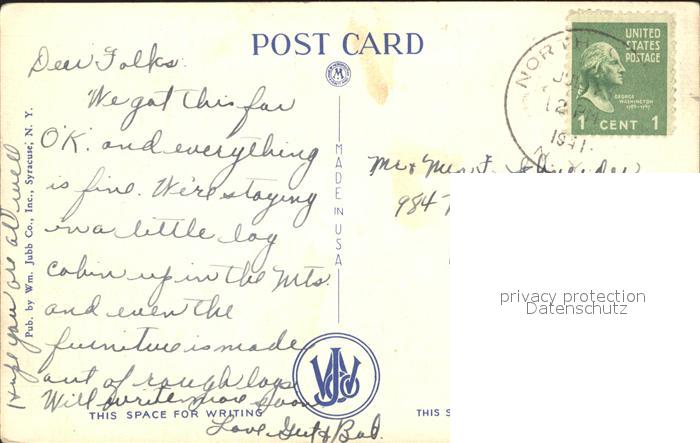 POST CARD
Dear Folks:
We got this far
O'K. and everything
is fine. We're staying
in a little log
cabin up in the Mts.
and even the
furniture is made
out of rough logs
Will write more soon
Love
& Bob.
Hope you are all well
Pub. by Wm. Jubb Co., Inc., Syracuse, N. Y.
THIS SPACE FOR WRITING
MADE IN USA
NORTH
12 PM
1941
N.Y.
UNITED
STATES
POSTAGE
GEORGE
WASHINGTON
1 CENT 1
Mr & Mrs
984
THIS S
privacy protection
Datenschutz